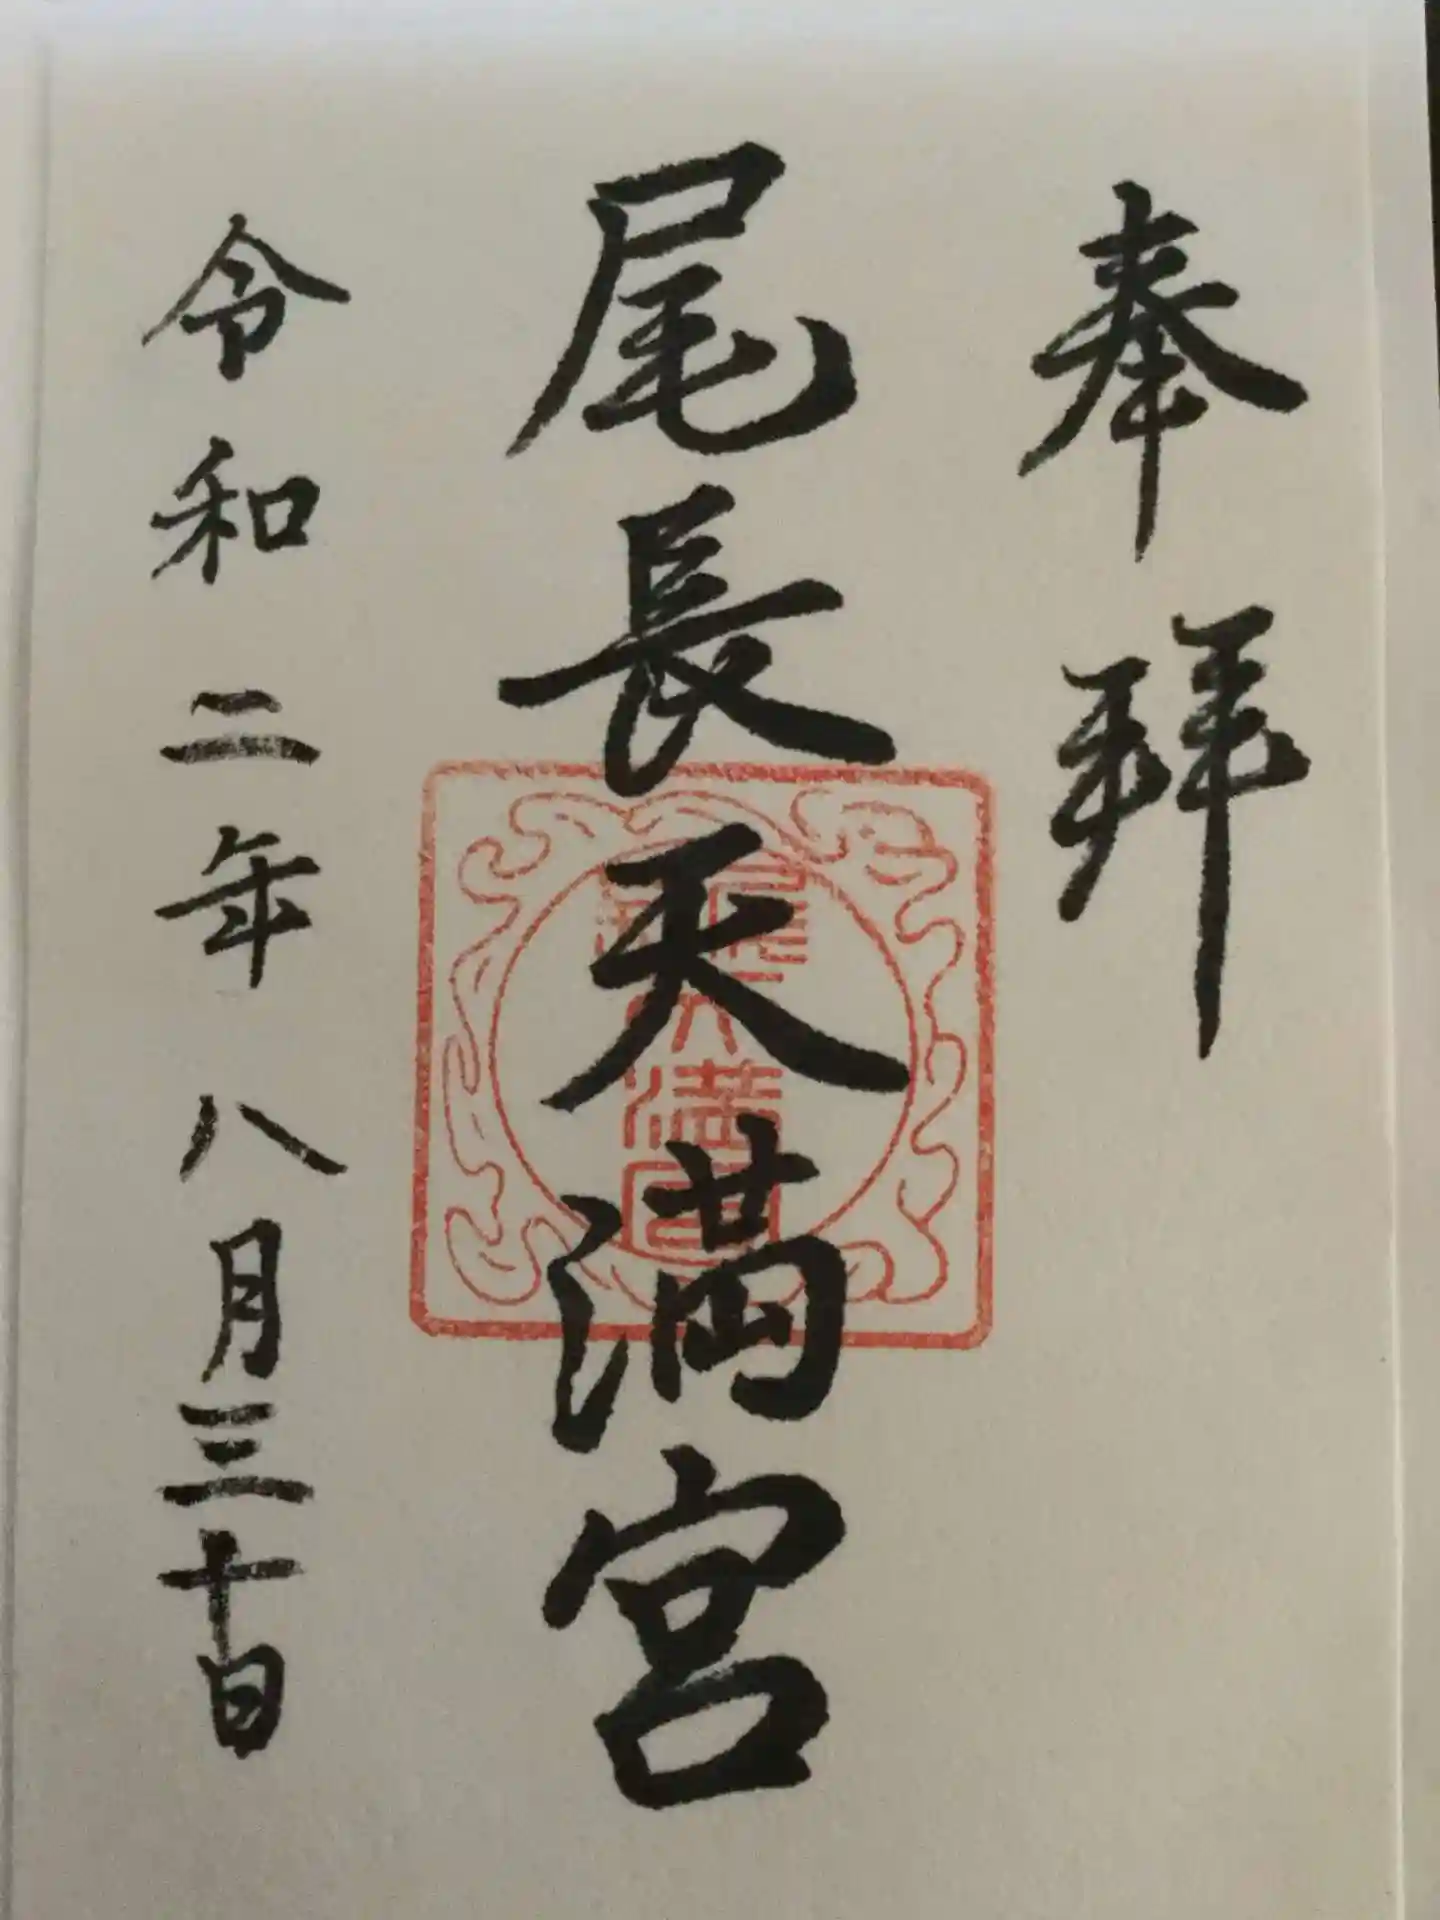 奉拜
尾長天満宮
令和二年八月三十日